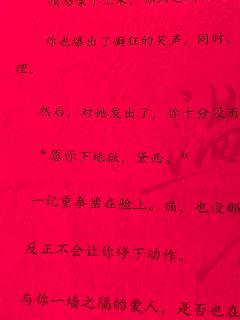 你也爆出了癫狂的笑声，同时，
理。
然后，对她发出了，你十分没有
“愿你下地狱，黛西。”
一记重拳凿在脸上。痛，也没那
反正不会让你停下动作。
与你一墙之隔的爱人，是否也在